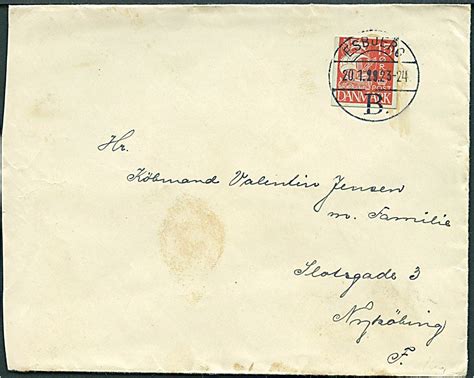 ESBJERG
20.1.29.23-24
B.
POST
DANMARK
Hr.
Købmand Valentin Jensen
m. Familie
Slotsgade 3
Nykøbing
F.